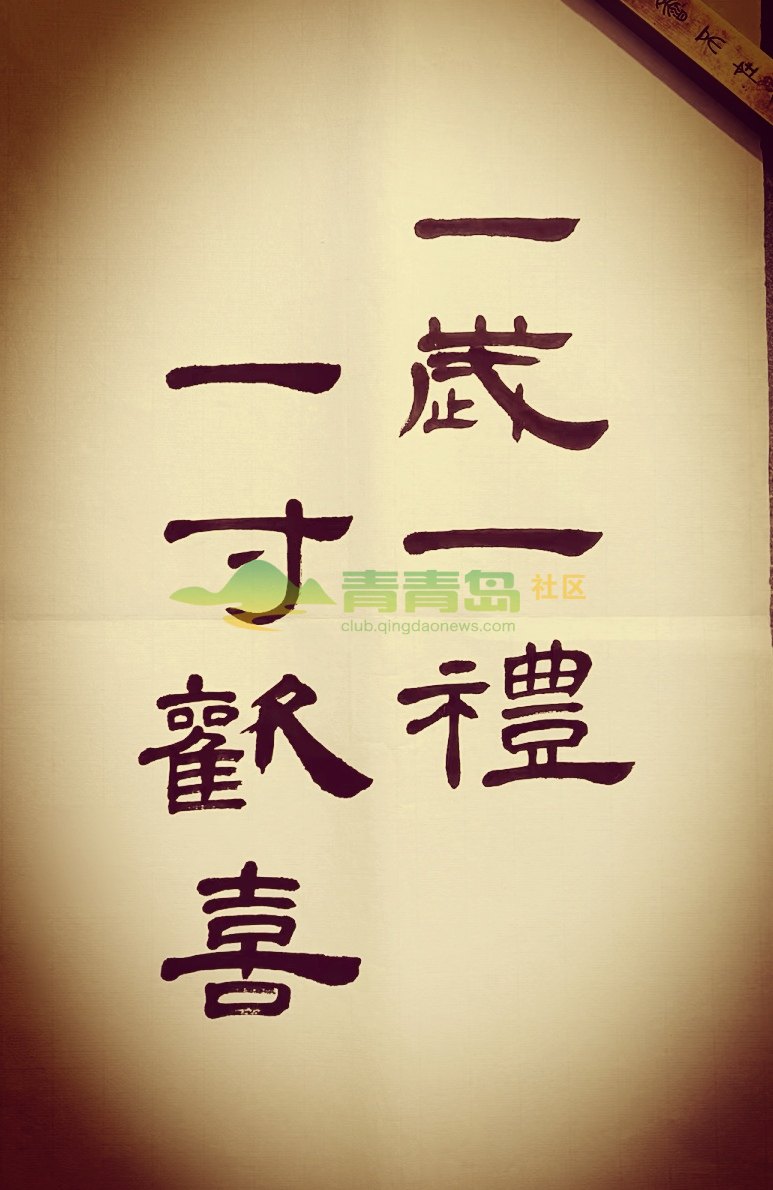 一歲一禮
一寸歡喜
青青岛 社区
club.qingdaonews.com